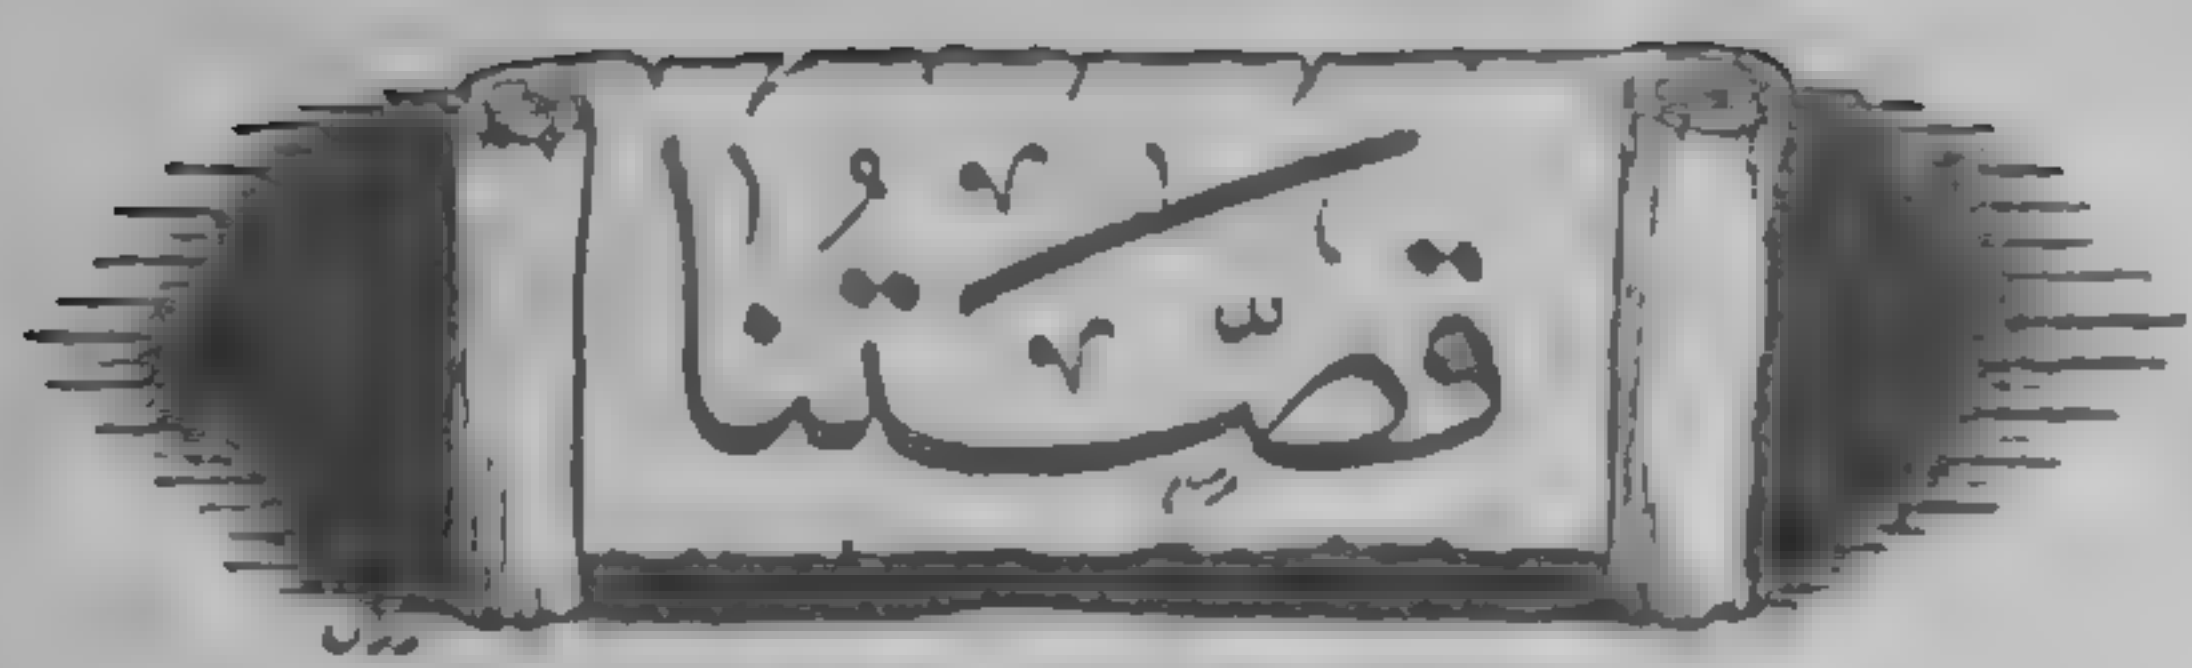 قصّتُنا